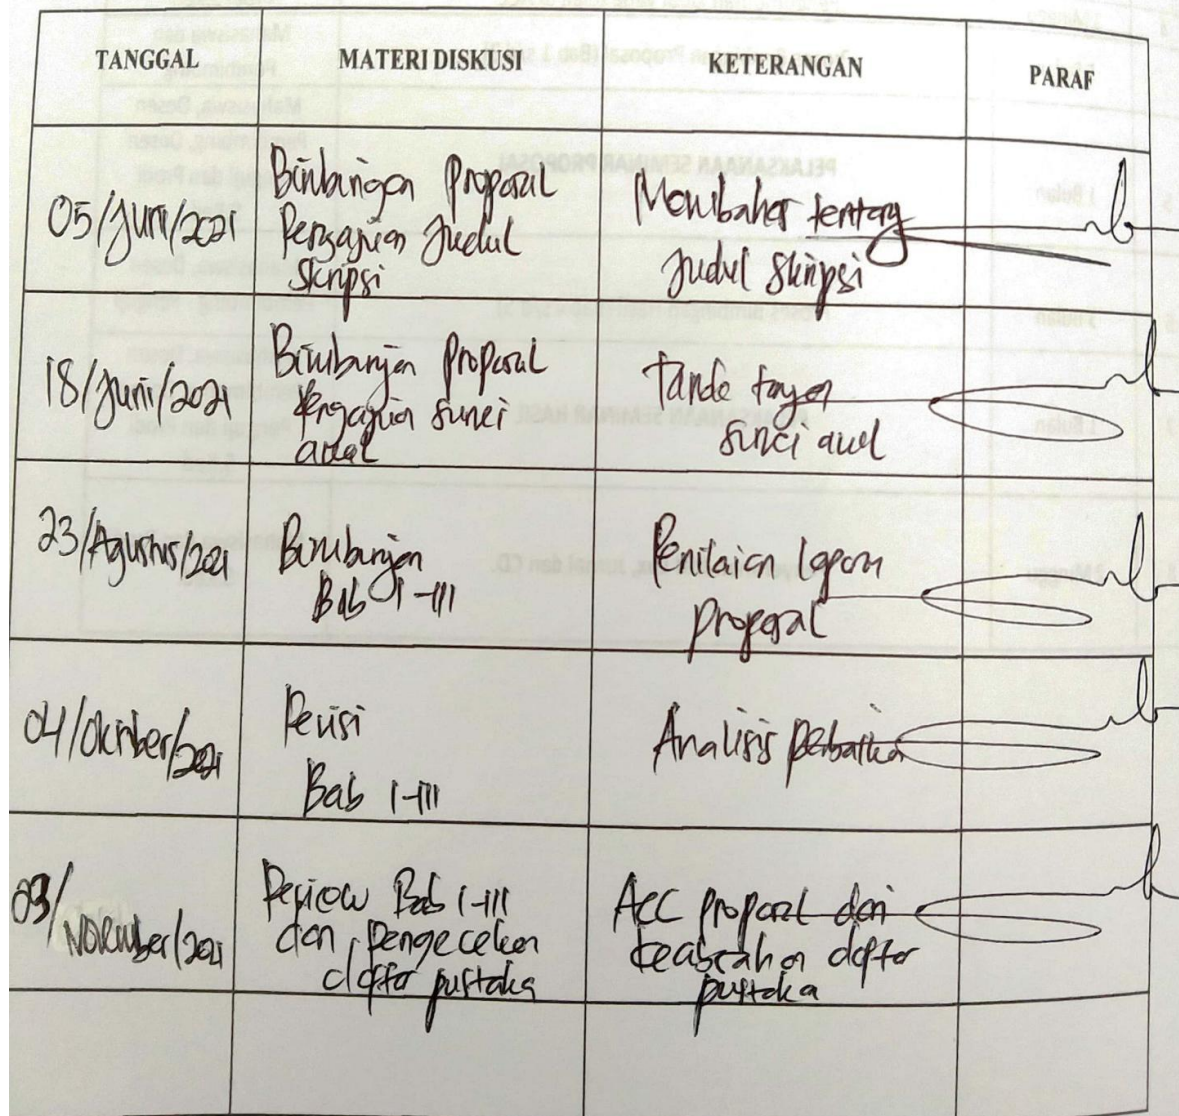 TANGGAL MATERI DISKUSI KETERANGAN PARAF
05/Juni/2021
Bimbingan Proposal
Pengajuan Judul
Skripsi
Membahas tentang
Judul Skripsi
18/Juni/2021
Bimbingan Proposal
Pengajuan survei
awal
Tanda tangan
survei awal
23/Agustus/2021
Bimbingan
Bab I-III
Penilaian
proposal
04/Oktober/2021
Revisi
Bab I-III
Analisis
03/
November/2021
Review Bab I-III
dan pengecekan
daftar pustaka
ACC proposal dan
keabsahan daftar
pustaka